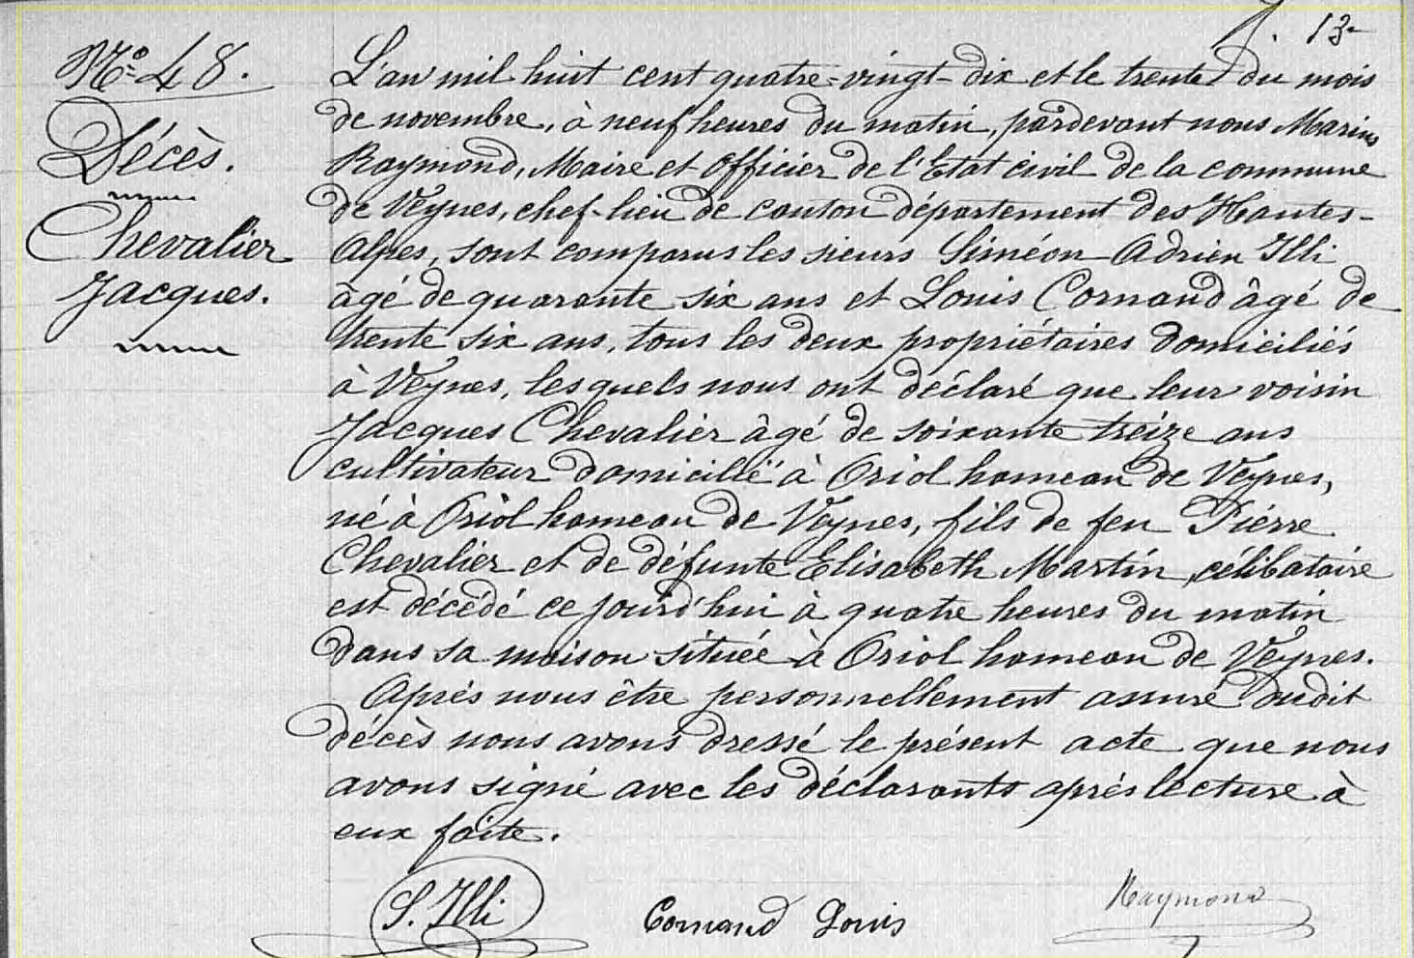 f. 13
N° 48.
Décès.
Chevalier
Jacques.
L'an mil huit cent quatre-vingt-dix et le trente du mois
de novembre, à neuf heures du matin, pardevant nous Marius
Raymond, Maire et Officier de l'Etat civil de la commune
de Veynes, chef-lieu de canton département des Hautes-
Alpes, sont comparus les sieurs Siméon Adrien Illi
âgé de quarante six ans et Louis Cornand âgé de
trente six ans, tous les deux propriétaires domiciliés
à Veynes, lesquels nous ont déclaré que leur voisin
Jacques Chevalier âgé de soixante treize ans
cultivateur domicilié à Oriol hameau de Veynes,
né à Oriol hameau de Veynes, fils de feu Pierre
Chevalier et de défunte Elisabeth Martin, célibataire
est décédé ce jourd'hui à quatre heures du matin
dans sa maison située à Oriol hameau de Veynes.
Après nous être personnellement assuré dudit
décès nous avons dressé le présent acte que nous
avons signé avec les déclarants après lecture à
eux faite.
S. Illi
Cornand Louis
Raymond